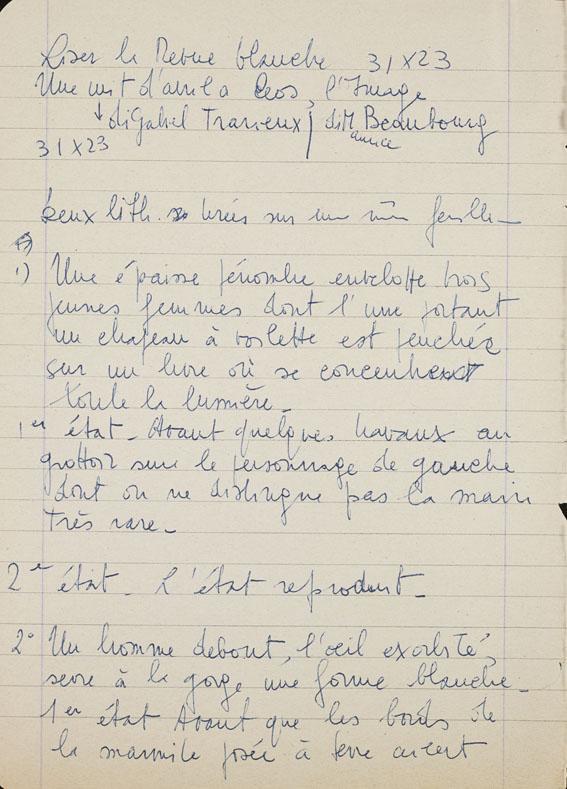 Lisez la Revue blanche 31 X 23
Une nuit d'avril a Ceos, l'Image
↓ di Gabiel Trarieux / di M Beaubourg
aurice
31 X 23
Deux lith. tirées sur une même feuille_
1) Une épaisse pénombre enveloppe trois
jeunes femmes dont l'une portant
un chapeau à voilette est penchée
sur un livre où se concentrent
toute la lumière_
1er état_ Avant quelques travaux au
grattoir sur le personnage de gauche
dont on ne distingue pas la main
Très rare_
2e état_ L'état reproduit_
2° Un homme debout, l'oeil exorbité,
serre à la gorge une forme blanche_
1er état Avant que les bords de
la marmite posée à terre aient